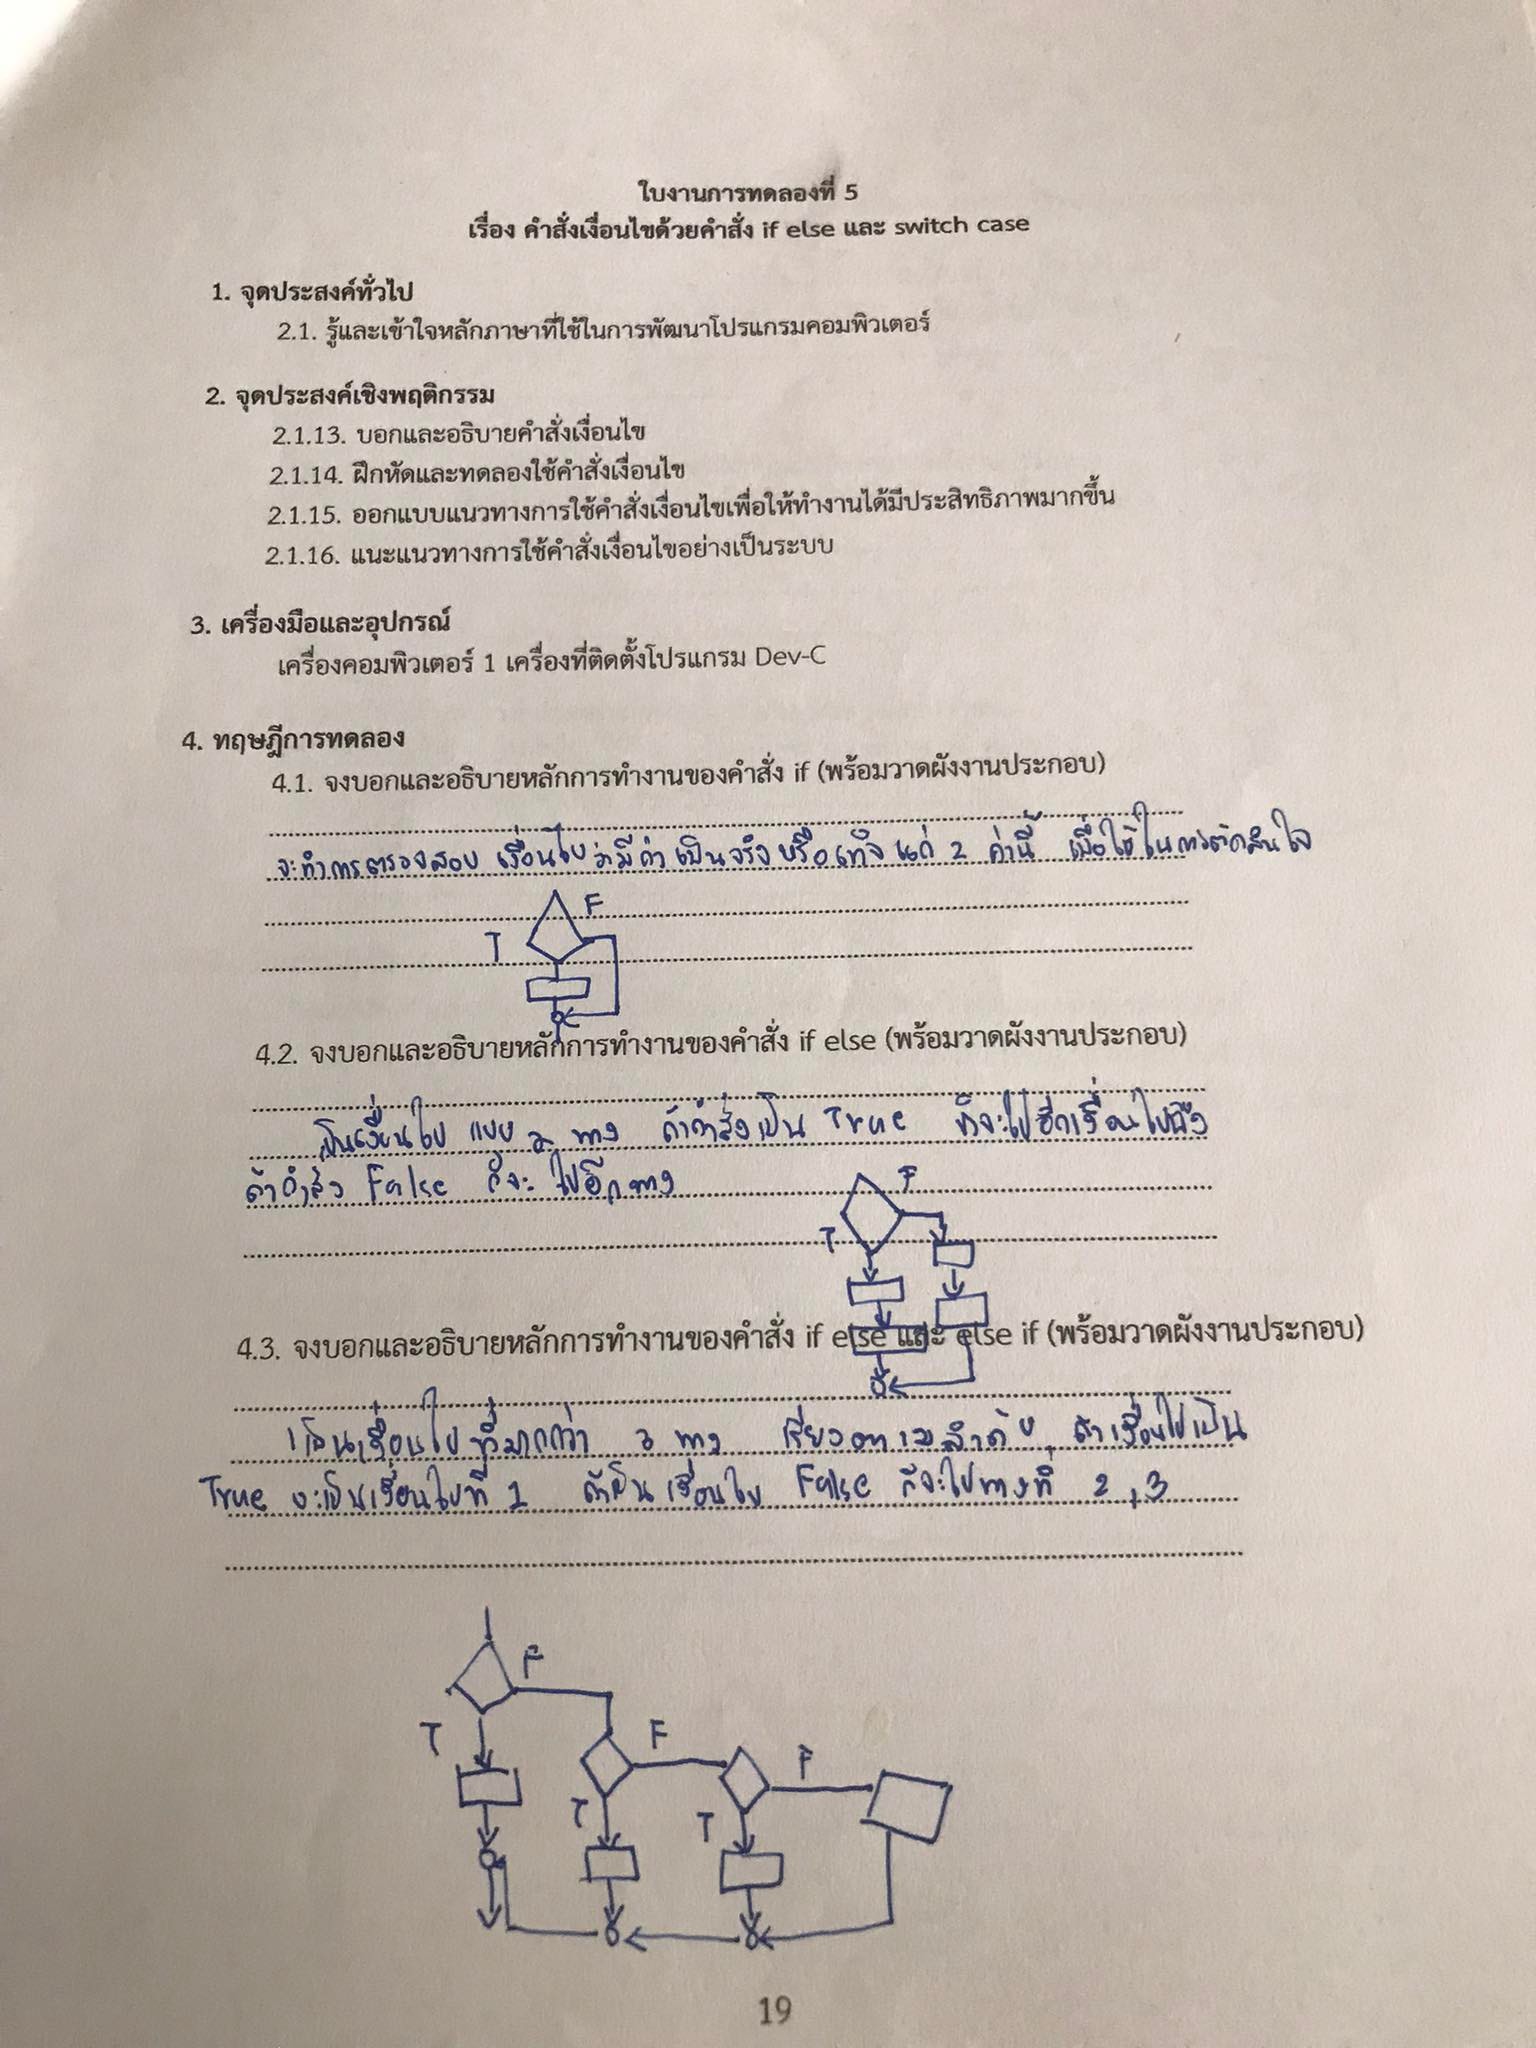 ใบงานการทดลองที่ 5
เรื่อง คำสั่งเงื่อนไขด้วยคำสั่ง if else และ switch case
1. จุดประสงค์ทั่วไป
2.1. รู้และเข้าใจหลักภาษาที่ใช้ในการพัฒนาโปรแกรมคอมพิวเตอร์
2. จุดประสงค์เชิงพฤติกรรม
2.1.13. บอกและอธิบายคำสั่งเงื่อนไข
2.1.14. ฝึกหัดและทดลองใช้คำสั่งเงื่อนไข
2.1.15. ออกแบบแนวทางการใช้คำสั่งเงื่อนไขเพื่อให้ทำงานได้มีประสิทธิภาพมากขึ้น
2.1.16. แนะแนวทางการใช้คำสั่งเงื่อนไขอย่างเป็นระบบ
3. เครื่องมือและอุปกรณ์
เครื่องคอมพิวเตอร์ 1 เครื่องที่ติดตั้งโปรแกรม Dev-C
4. ทฤษฎีการทดลอง
4.1. จงบอกและอธิบายหลักการทำงานของคำสั่ง if (พร้อมวาดผังงานประกอบ)
จะทำการตรวจสอบ เงื่อนไข ว่ามีค่าเป็นจริงหรือเท็จ แค่ 2 ค่านี้ เพื่อใช้ในการตัดสินใจ
F
T
4.2. จงบอกและอธิบายหลักการทำงานของคำสั่ง if else (พร้อมวาดผังงานประกอบ)
เป็นเงื่อนไข แบบ 2 ทาง ถ้าคำสั่งเป็น True ก็จะไปอีกเงื่อนไขนึง
ถ้าคำสั่ง False ก็จะ ไปอีกทาง
F
T
4.3. จงบอกและอธิบายหลักการทำงานของคำสั่ง if else และ else if (พร้อมวาดผังงานประกอบ)
เป็นเงื่อนไข ที่มากกว่า 2 ทาง เรียงตามลำดับ ถ้าเงื่อนไขเป็น
True จะเป็นเงื่อนไขที่ 1 ถ้าเป็น เงื่อนไข False ก็จะไปทางที่ 2,3
F
T F F
T T
19